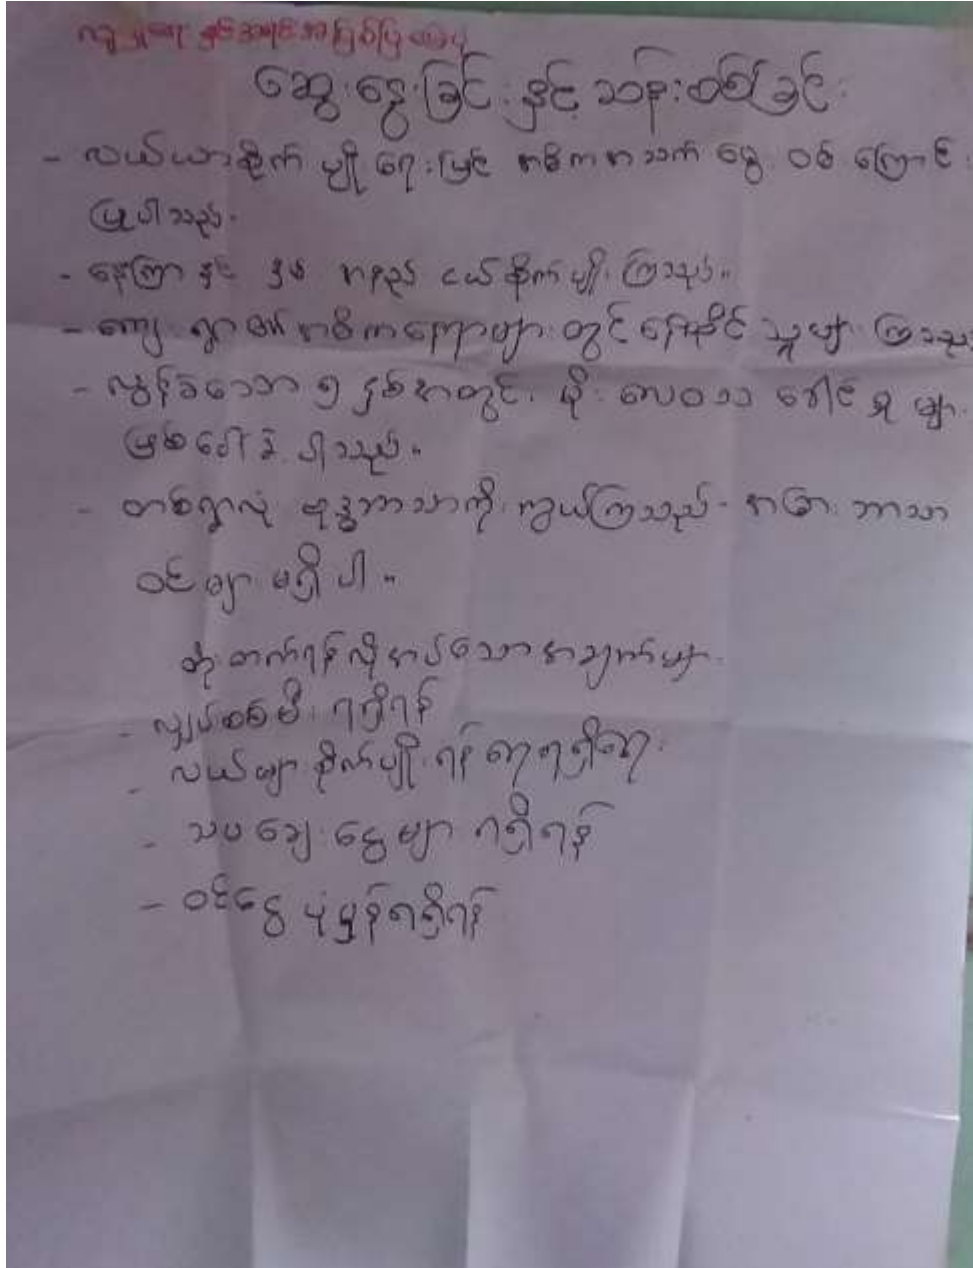 လူမှုရေး နှင့်
ဆွေးနွေးခြင်းနှင့် ဆန်းစစ်ခြင်း
- လယ်ယာစိုက်ပျိုးရေးဖြင့် အဓိကအသက်မွေးဝမ်းကြောင်း
ပြုပါသည်။
- နေကြာနှင့် နှမ်း အနည်းငယ်စိုက်ပျိုးကြသည်။
- ကျေးရွာ၏ အဓိက များတွင် သူများကြသည်
- လွန်ခဲ့သော ၅ နှစ်အတွင်း မိုးလေဝသ ခေါင်ရှုများ
ဖြစ်ပေါ်ခဲ့ပါသည်။
- တစ်ရွာလုံး ဗုဒ္ဓဘာသာကိုးကွယ်ကြသည်- အခြားဘာသာ
ဝင်များ မရှိပါ။
တိုးတက်ရန်လိုအပ်သောအချက်များ
- လျှပ်စစ်မီးရရှိရန်
- လယ်များစိုက်ပျိုးရန် ရေရရှိရေး
- သမချေးငွေများ ရရှိရန်
- ဝင်ငွေ ပုံမှန်ရရှိရန်